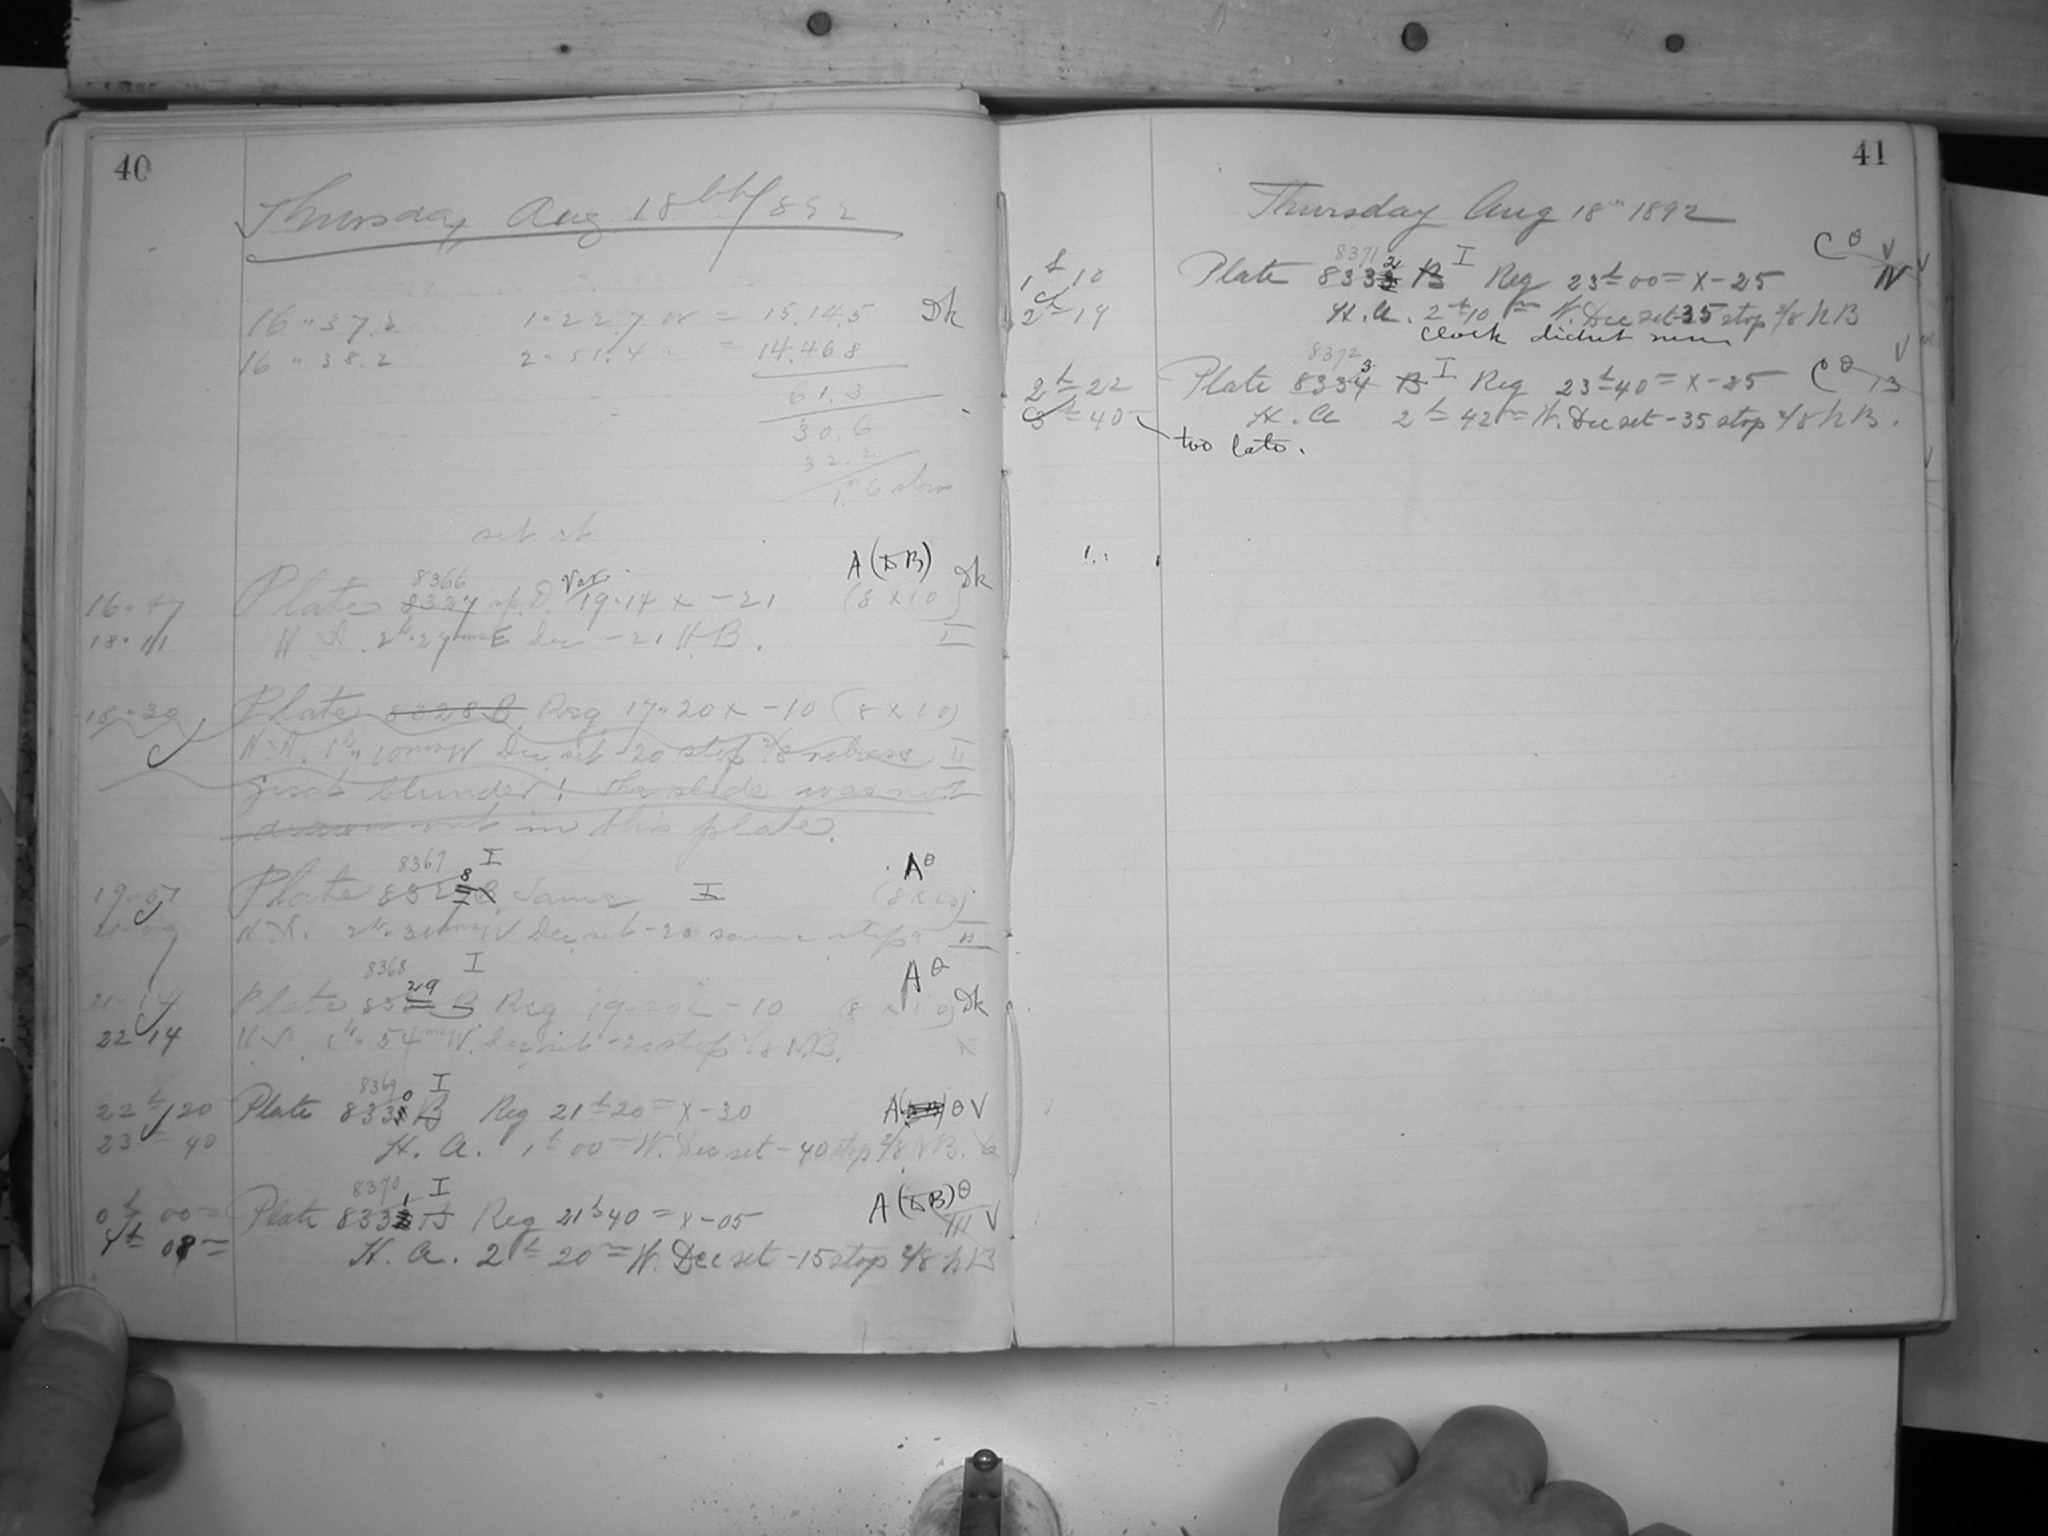 40
Thursday, Aug 18th 1892
16 " 37.2 1 " 22.7 W = 15.14.5 Dk
16 " 38.2 2 " 51.4 " = 14.46.8
61.3
30.6
32.2
1.m6 slow
set at
8366 Var. A (DB) Dk
16 " 47 Plate 8327 sp. D. 19 " 14 x - 21 (8 x 10)
18 " 11 H. A. 2h " 27m E Dec - 21 H. B. I
18 " 30 Plate 8328 B Reg 17 " 20 x - 10 (8 x 10)
H. A. 1h " 10m W Dec set - 20 stop 2/8 II
Great blunder! The slide was not
drawn out in this plate.
8367 8 I Aθ
19 " 57 Plate B Same I (8 x 10)
H. A. 2h " 31m W Dec set - 20 same stop II
8368 29 I Aθ
21 " 14 Plate B Reg 19 " 20 x - 10 (8 x 10) Dk
22 " 14 H. A. 1h " 54m W. Dec set - 20 stop 2/8 N.B.
8369 0 I
22h 20 Plate 833 B Reg 21h 20m x - 30 A θ V
23h 40 H. A. 1h 00m W. Dec set - 40 stop 2/8 N B.
8370 1 I A (DB) θ
0h 00m Plate 833 B Reg 21h 40m x - 05 III V
1h 08m H. A. 2h 20m W. Dec set - 15 stop 2/8 N B
41
Thursday Aug 18th 1892
8371 2 I C θ V
1h 10 Plate 833 B Reg 23h 00m x - 25 IV
2h 19 H. A. 2h 10m W. Dec set - 35 stop 2/8 N B
Clock didn't run
8372 3 I C θ
2h 22 Plate 8334 B Reg 23h 40m x - 25 13
3h 40 H. A 2h 42m W. Dec set - 35 stop 2/8 N B.
too late.